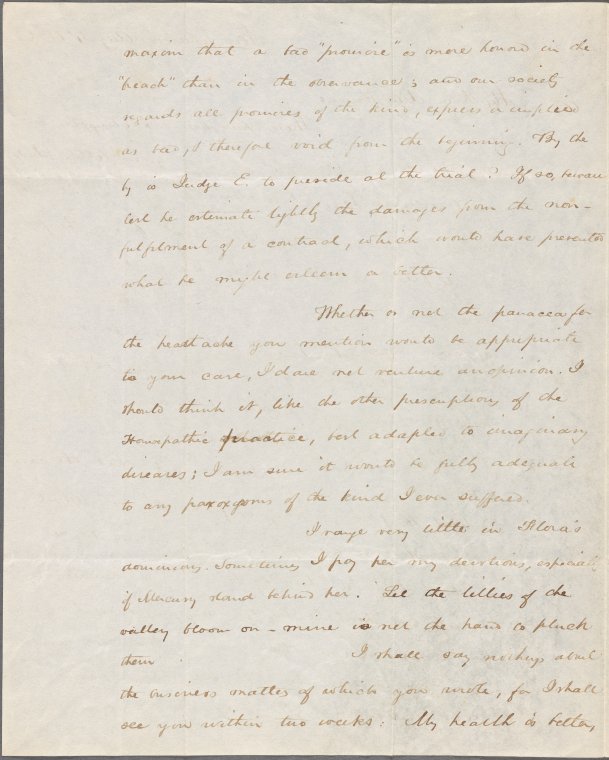 maxim that a bad "promise" is more honord in the
"breach" than in the observance; and our society
regards all promises of the kind, express or implied
as bad, & therefore void from the beginning. By the
by is Judge E. to preside at the trial? If so, beware
lest he estimate lightly the damages from the non-
fulfilment of a contract, which would have prevented
what he might esteem a better.
Whether or not the panacea for
the heartache you mention would be appropriate
to your case, I dare not venture an opinion. I
should think it, like the other prescriptions of the
Homœpathic practice, best adapted to imaginary
diseases; I am sure it would be fully adequate
to any paroxysms of the kind I ever suffered.
I range very little in Flora's
dominions. Sometimes I pay her my devotions, especially
if Mercury stand behind her. Let the lillies of the
valley bloom on - mine is not the hand to pluck
them I shall say nothing about
the business matter of which you wrote, for I shall
see you within two weeks. My health is better,